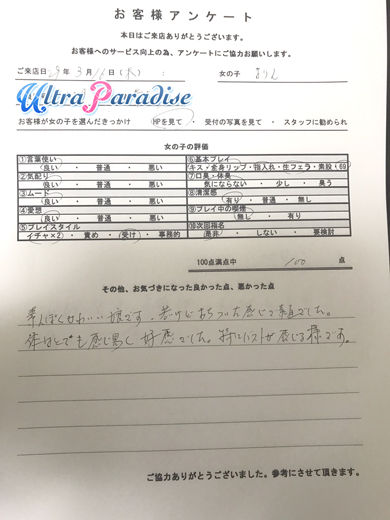 お客様アンケート
本日はご来店ありがとうございます。
お客様へのサービス向上の為、アンケートにご協力お願いします。
ご来店日 年 3月 日(木) 女の子
Ultra Paradise
お客様が女の子を選んだきっかけ HPを見て ・ 受付の写真を見て ・ スタッフに勧められ
女の子の評価
①言葉使い ⑥基本プレイ
(良い ・ 普通 ・ 悪い キス・全身リップ・指入れ・生フェラ・素股・69
②気配り ⑦口臭・体臭
(良い ・ 普通 ・ 悪い 気にならない ・ 少し ・ 臭う
③ムード ⑧清潔感
(良い ・ 普通 ・ 悪い 有り ・ 普通 ・ 無し
④愛想 ⑨プレイ中の喫煙
(良い ・ 普通 ・ 悪い 無し ・ 有り
⑤プレイスタイル ⑩次回指名
イチャ×2 ・ 責め ・ (受け) ・ 事務的 是非 ・ しない ・ 要検討
100点満点中 100 点
その他、お気づきになった良かった点、悪かった点
かわいい娘です。 感じで でした。
体はとても感じ易く 好感 でした。特にバストが感じる様です。
ご協力ありがとうございました。参考にさせて頂きます。